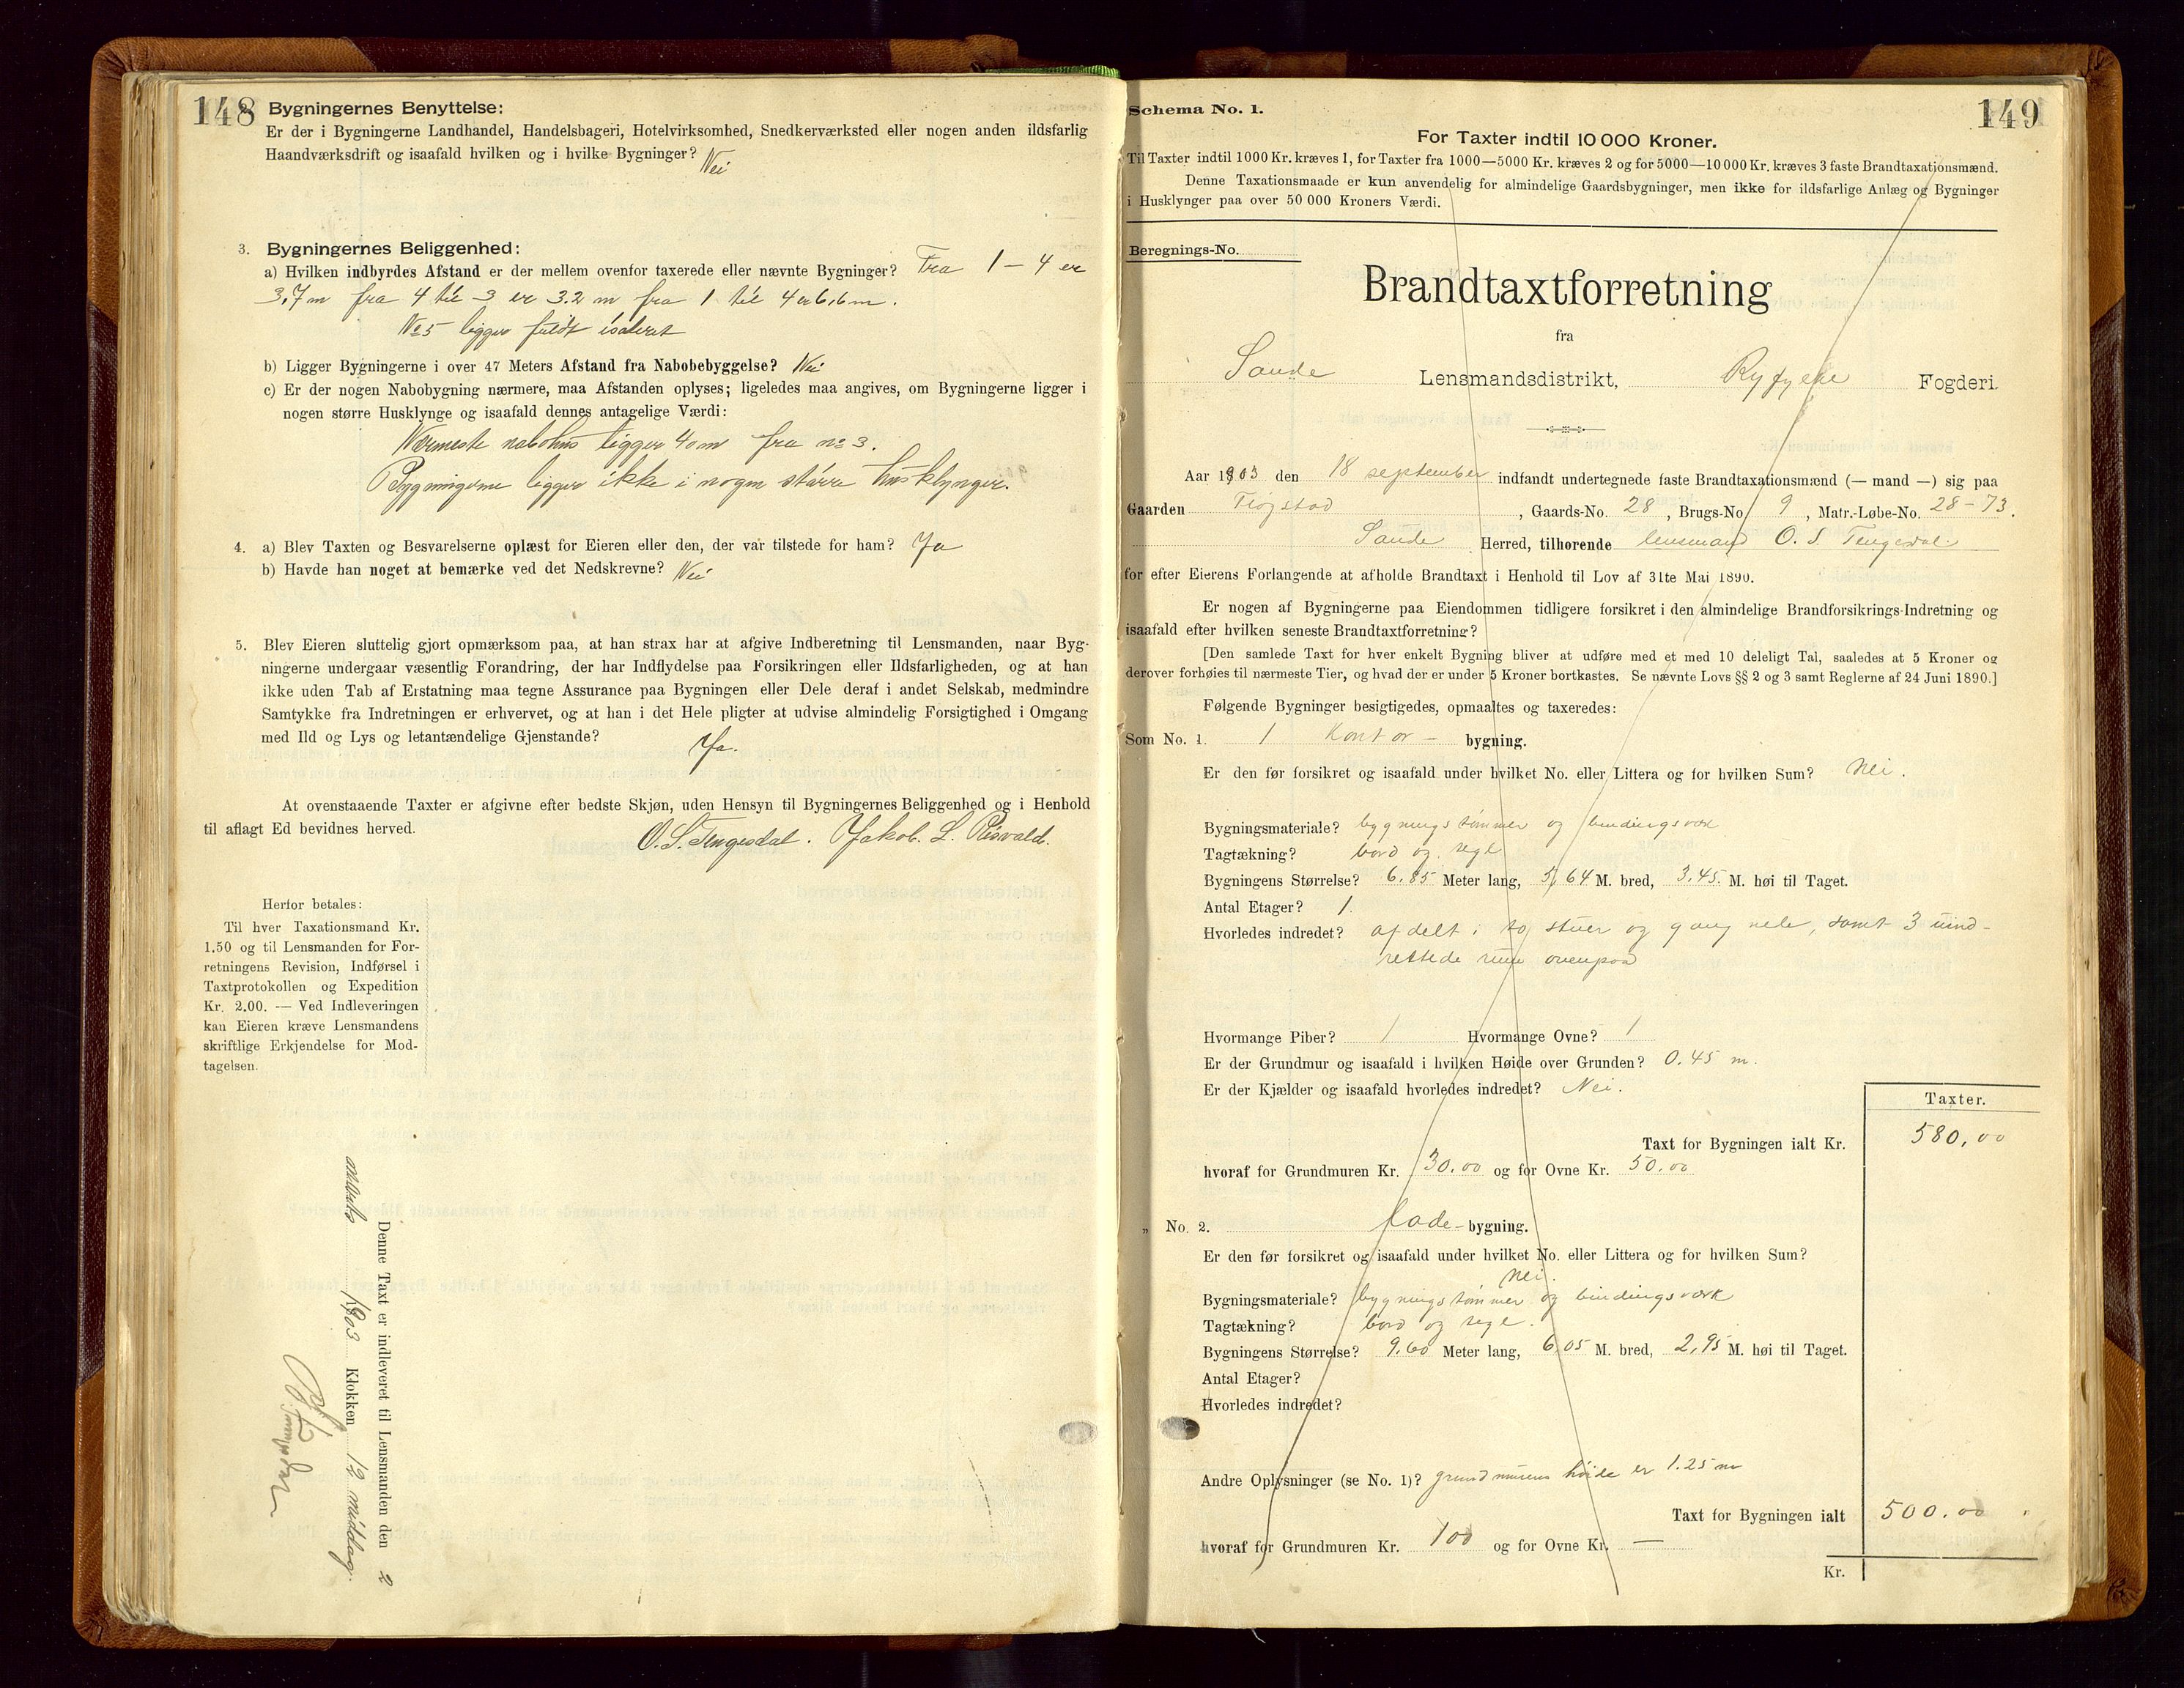 148
Bygningernes Benyttelse:
Er der i Bygningerne Landhandel, Handelsbageri, Hotelvirksomhed, Snedkerværksted eller nogen anden ildsfarlig
Haandværksdrift og isaafald hvilken og i hvilke Bygninger? Nei
3. Bygningernes Beliggenhed:
a) Hvilken indbyrdes Afstand er der mellem ovenfor taxerede eller nævnte Bygninger? Fra 1 – 4 er
3,7 m fra 4 til 3 er 3.2 m fra 1 til 4 er 6,6 m.
No 5 ligger fuldt isoleret
b) Ligger Bygningerne i over 47 Meters Afstand fra Nabobebyggelse? Nei
c) Er der nogen Nabobygning nærmere, maa Afstanden oplyses; ligeledes maa angives, om Bygningerne ligger i
nogen større Husklynge og isaafald dennes antagelige Værdi:
Nærmeste nabohus ligger 40 m fra no 3.
Bygningerne ligger ikke i nogen større husklynger.
4. a) Blev Taxten og Besvarelserne oplæst for Eieren eller den, der var tilstede for ham? Ja
b) Havde han noget at bemærke ved det Nedskrevne? Nei
5. Blev Eieren sluttelig gjort opmærksom paa, at han strax har at afgive Indberetning til Lensmanden, naar Byg-
ningerne undergaar væsentlig Forandring, der har Indflydelse paa Forsikringen eller Ildsfarligheden, og at han
ikke uden Tab af Erstatning maa tegne Assurance paa Bygningen eller Dele deraf i andet Selskab, medmindre
Samtykke fra Indretningen er erhvervet, og at han i det Hele pligter at udvise almindelig Forsigtighed i Omgang
med Ild og Lys og letantændelige Gjenstande? Ja.
At ovenstaaende Taxter er afgivne efter bedste Skjøn, uden Hensyn til Bygningernes Beliggenhed og i Henhold
til aflagt Ed bevidnes herved.
O. S. Tengesdal. Jakob. L. Risvald.
Herfor betales:
Til hver Taxationsmand Kr.
1.50 og til Lensmanden for For-
retningens Revision, Indførsel i
Taxtprotokollen og Expedition
Kr. 2.00. — Ved Indleveringen
kan Eieren kræve Lensmandens
skriftlige Erkjendelse for Mod-
tagelsen.
Denne Taxt er indleveret til Lensmanden den 2
marts 1903 Klokken 12 middag.
Tengesdal
Schema No. 1.
149
For Taxter indtil 10 000 Kroner.
Til Taxter indtil 1000 Kr. kræves 1, for Taxter fra 1000—5000 Kr. kræves 2 og for 5000—10 000 Kr. kræves 3 faste Brandtaxationsmænd.
Denne Taxationsmaade er kun anvendelig for almindelige Gaardsbygninger, men ikke for ildsfarlige Anlæg og Bygninger
i Husklynger paa over 50 000 Kroners Værdi.
Beregnings-No.
Brandtaxtforretning
fra
Saude Lensmandsdistrikt, Ryfylke Fogderi.
Aar 1903 den 18 september indfandt undertegnede faste Brandtaxationsmænd (— mand —) sig paa
Gaarden Fiøgstad, Gaards-No. 28, Brugs-No 9, Matr.-Løbe-No. 28 – 73.
Saude Herred, tilhørende lensmand O. S. Tengesdal
for efter Eierens Forlangende at afholde Brandtaxt i Henhold til Lov af 31te Mai 1890.
Er nogen af Bygningerne paa Eiendommen tidligere forsikret i den almindelige Brandforsikrings-Indretning og
isaafald efter hvilken seneste Brandtaxtforretning?
[Den samlede Taxt for hver enkelt Bygning bliver at udføre med et med 10 deleligt Tal, saaledes at 5 Kroner og
derover forhøies til nærmeste Tier, og hvad der er under 5 Kroner bortkastes. Se nævnte Lovs §§ 2 og 3 samt Reglerne af 24 Juni 1890.]
Følgende Bygninger besigtigedes, opmaaltes og taxeredes:
Som No. 1. 1 Kontor – bygning.
Er den før forsikret og isaafald under hvilket No. eller Littera og for hvilken Sum? Nei.
Bygningsmateriale? bygningstømmer og bindingsværk
Tagtækning? bord og tegl
Bygningens Størrelse? 6.85 Meter lang, 5,64 M. bred, 3.45. M. høi til Taget.
Antal Etager? 1.
Hvorledes indredet? afdelt i to stuer og gang nede, samt 3 uind-
rettede rum ovenpaa
Hvormange Piber? 1 Hvormange Ovne? 1
Er der Grundmur og isaafald i hvilken Høide over Grunden? 0.45 m.
Er der Kjælder og isaafald hvorledes indredet? Nei.
Taxter.
Taxt for Bygningen ialt Kr. 580,00
hvoraf for Grundmuren Kr. 30.00 og for Ovne Kr. 50.00
„ No. 2. Lade-bygning.
Er den før forsikret og isaafald under hvilket No. eller Littera og for hvilken Sum?
Nei.
Bygningsmateriale? bygningstømmer og bindingsværk
Tagtækning? bord og tegl.
Bygningens Størrelse? 9.60 Meter lang, 6.05 M. bred, 2,95 M. høi til Taget.
Antal Etager?
Hvorledes indredet?
Andre Oplysninger (se No. 1)? grundmurens høide er 1.25 m
Taxt for Bygningen ialt 500.00
hvoraf for Grundmuren Kr. 100 og for Ovne Kr. —
Kr.